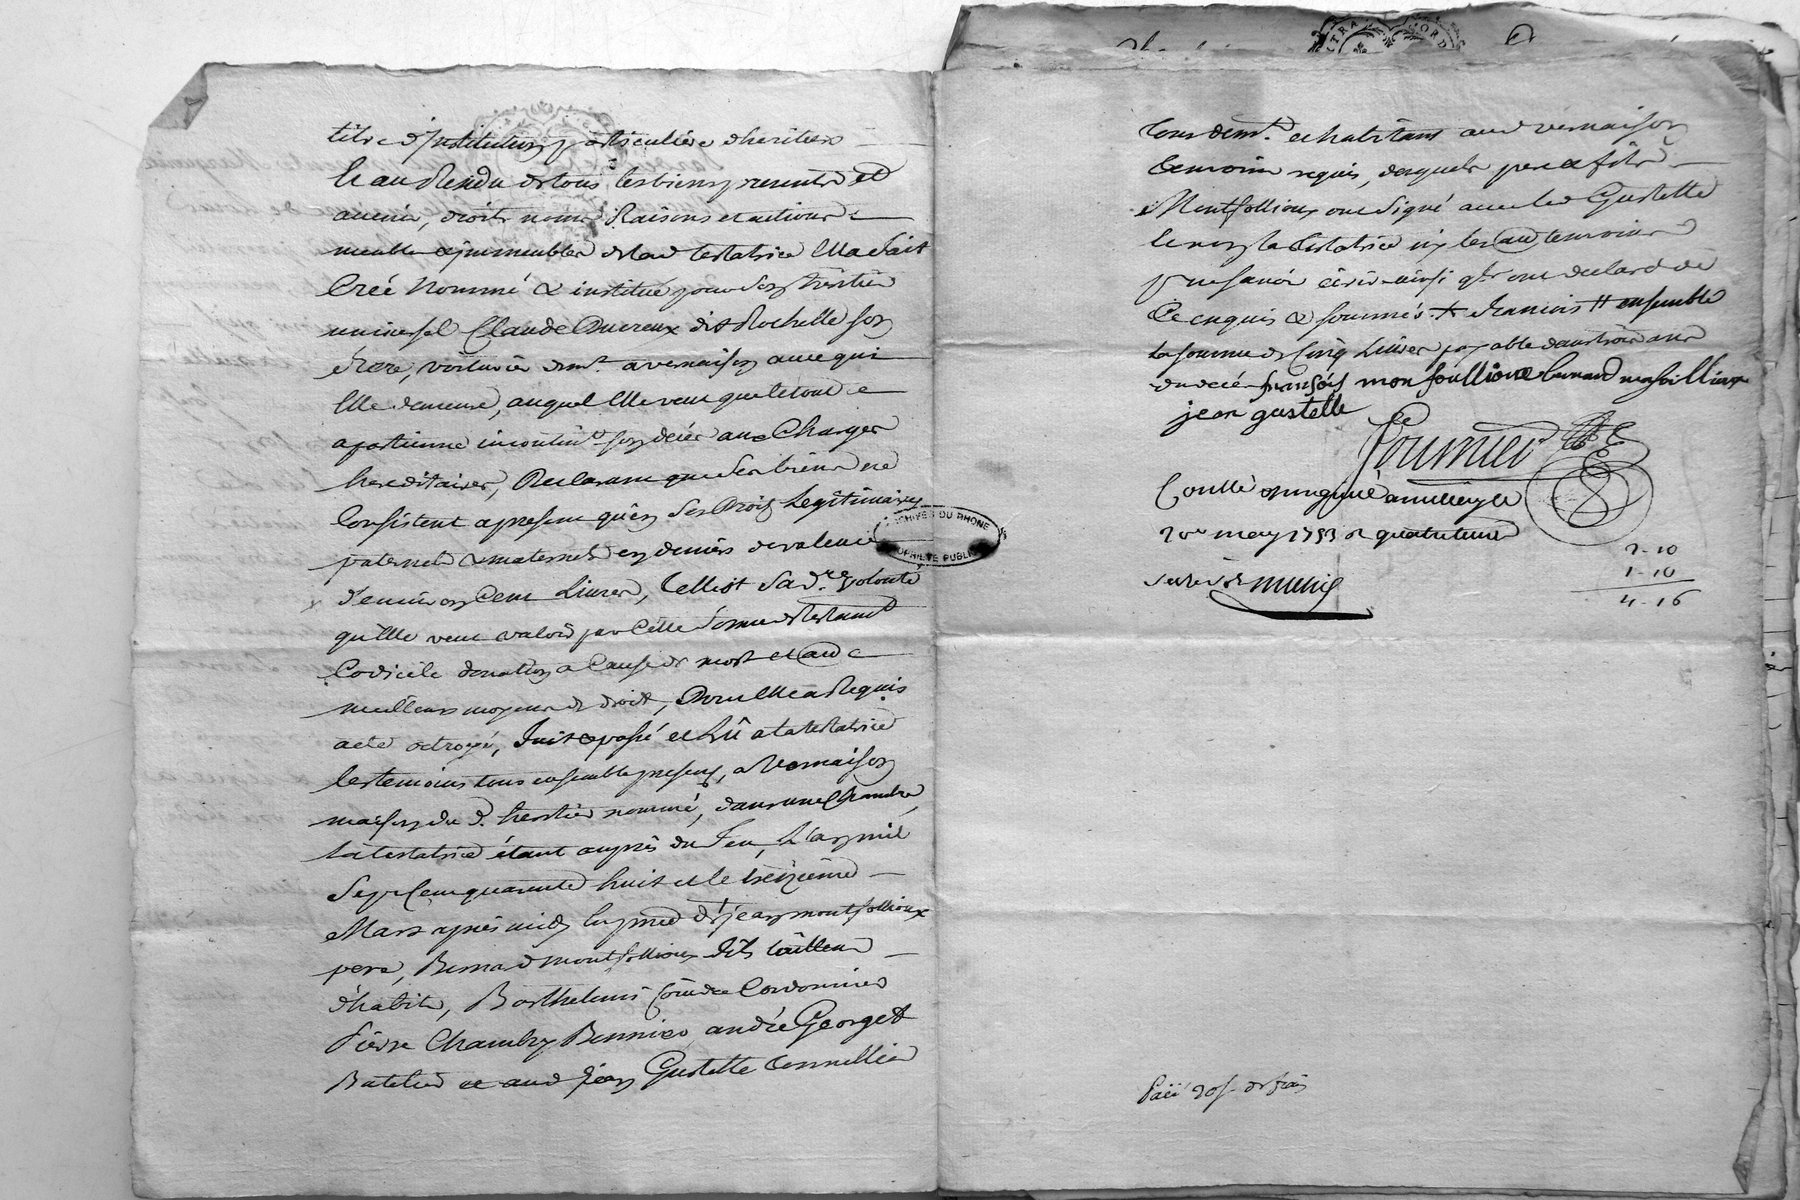 titre d'Institution particuliere d'heritiere
Et au Residu de tous ses biens presents et
avenir, droits noms Raisons et actions
meubles & immeubles de lad testatrice Elle a fait
Créé Nommé & institué pour son heritier
universel Claude dit Rochelle son
frere, voiturier demt. a vernaison avec qui
Elle demeure, auquel Elle veut que le tout
apartienne incontint. son decés aux Charges
hereditaires, Declarant que ses biens ne
Consistent a present qu'en ses Droits Legitimaires
paternels & maternels en deniers de valeur
d'environ Cent Livres, Telle est sa dre. volonté
qu'Elle veut valoir par Cette forme de testamt
Codicile donation a Cause de mort et au
meilleurs moyens de droit, Dont Elle a Requis
acte octroyé, fait & passé et Lû a la testatrice
les temoins tous ensemble presens, a Vernaison
maison du d. heritier nommé, dans une Chambre,
la testatrice étant auprés du feu, L'an mil
Sept Cent quarante huit et le treizieme
Mars aprés midy En pnce de jean montfollioux
pere, Bernard montfollioux fils tailleur
d'habits, Barthelemi Cordonnier
Pierre Chambry Bennier, andré Georget
Batelier et aud jean Gustelle Tonnellier
tous demt. et habitans aud vernaison
temoins requis, desquels pere & fils
Montfollioux ont signé avec led Gustelle
Et non la testatrice ny les au temoins
pr ne savoir écrire ainsi qls ont declaré de
Ce enquis & sommés. + francois # ensemble
la somme de Cinq Livres payable dans trois ans
du decés françois monfoullioux bernard monfoillioux
jean gustelle
Fournier
Conllé a
20e may 1753 R quatre
munig
2-10
1-10
4-16
Païé 20s de frais
ARCHIVES DU RHONE
PROPRIETE PUBLIQUE